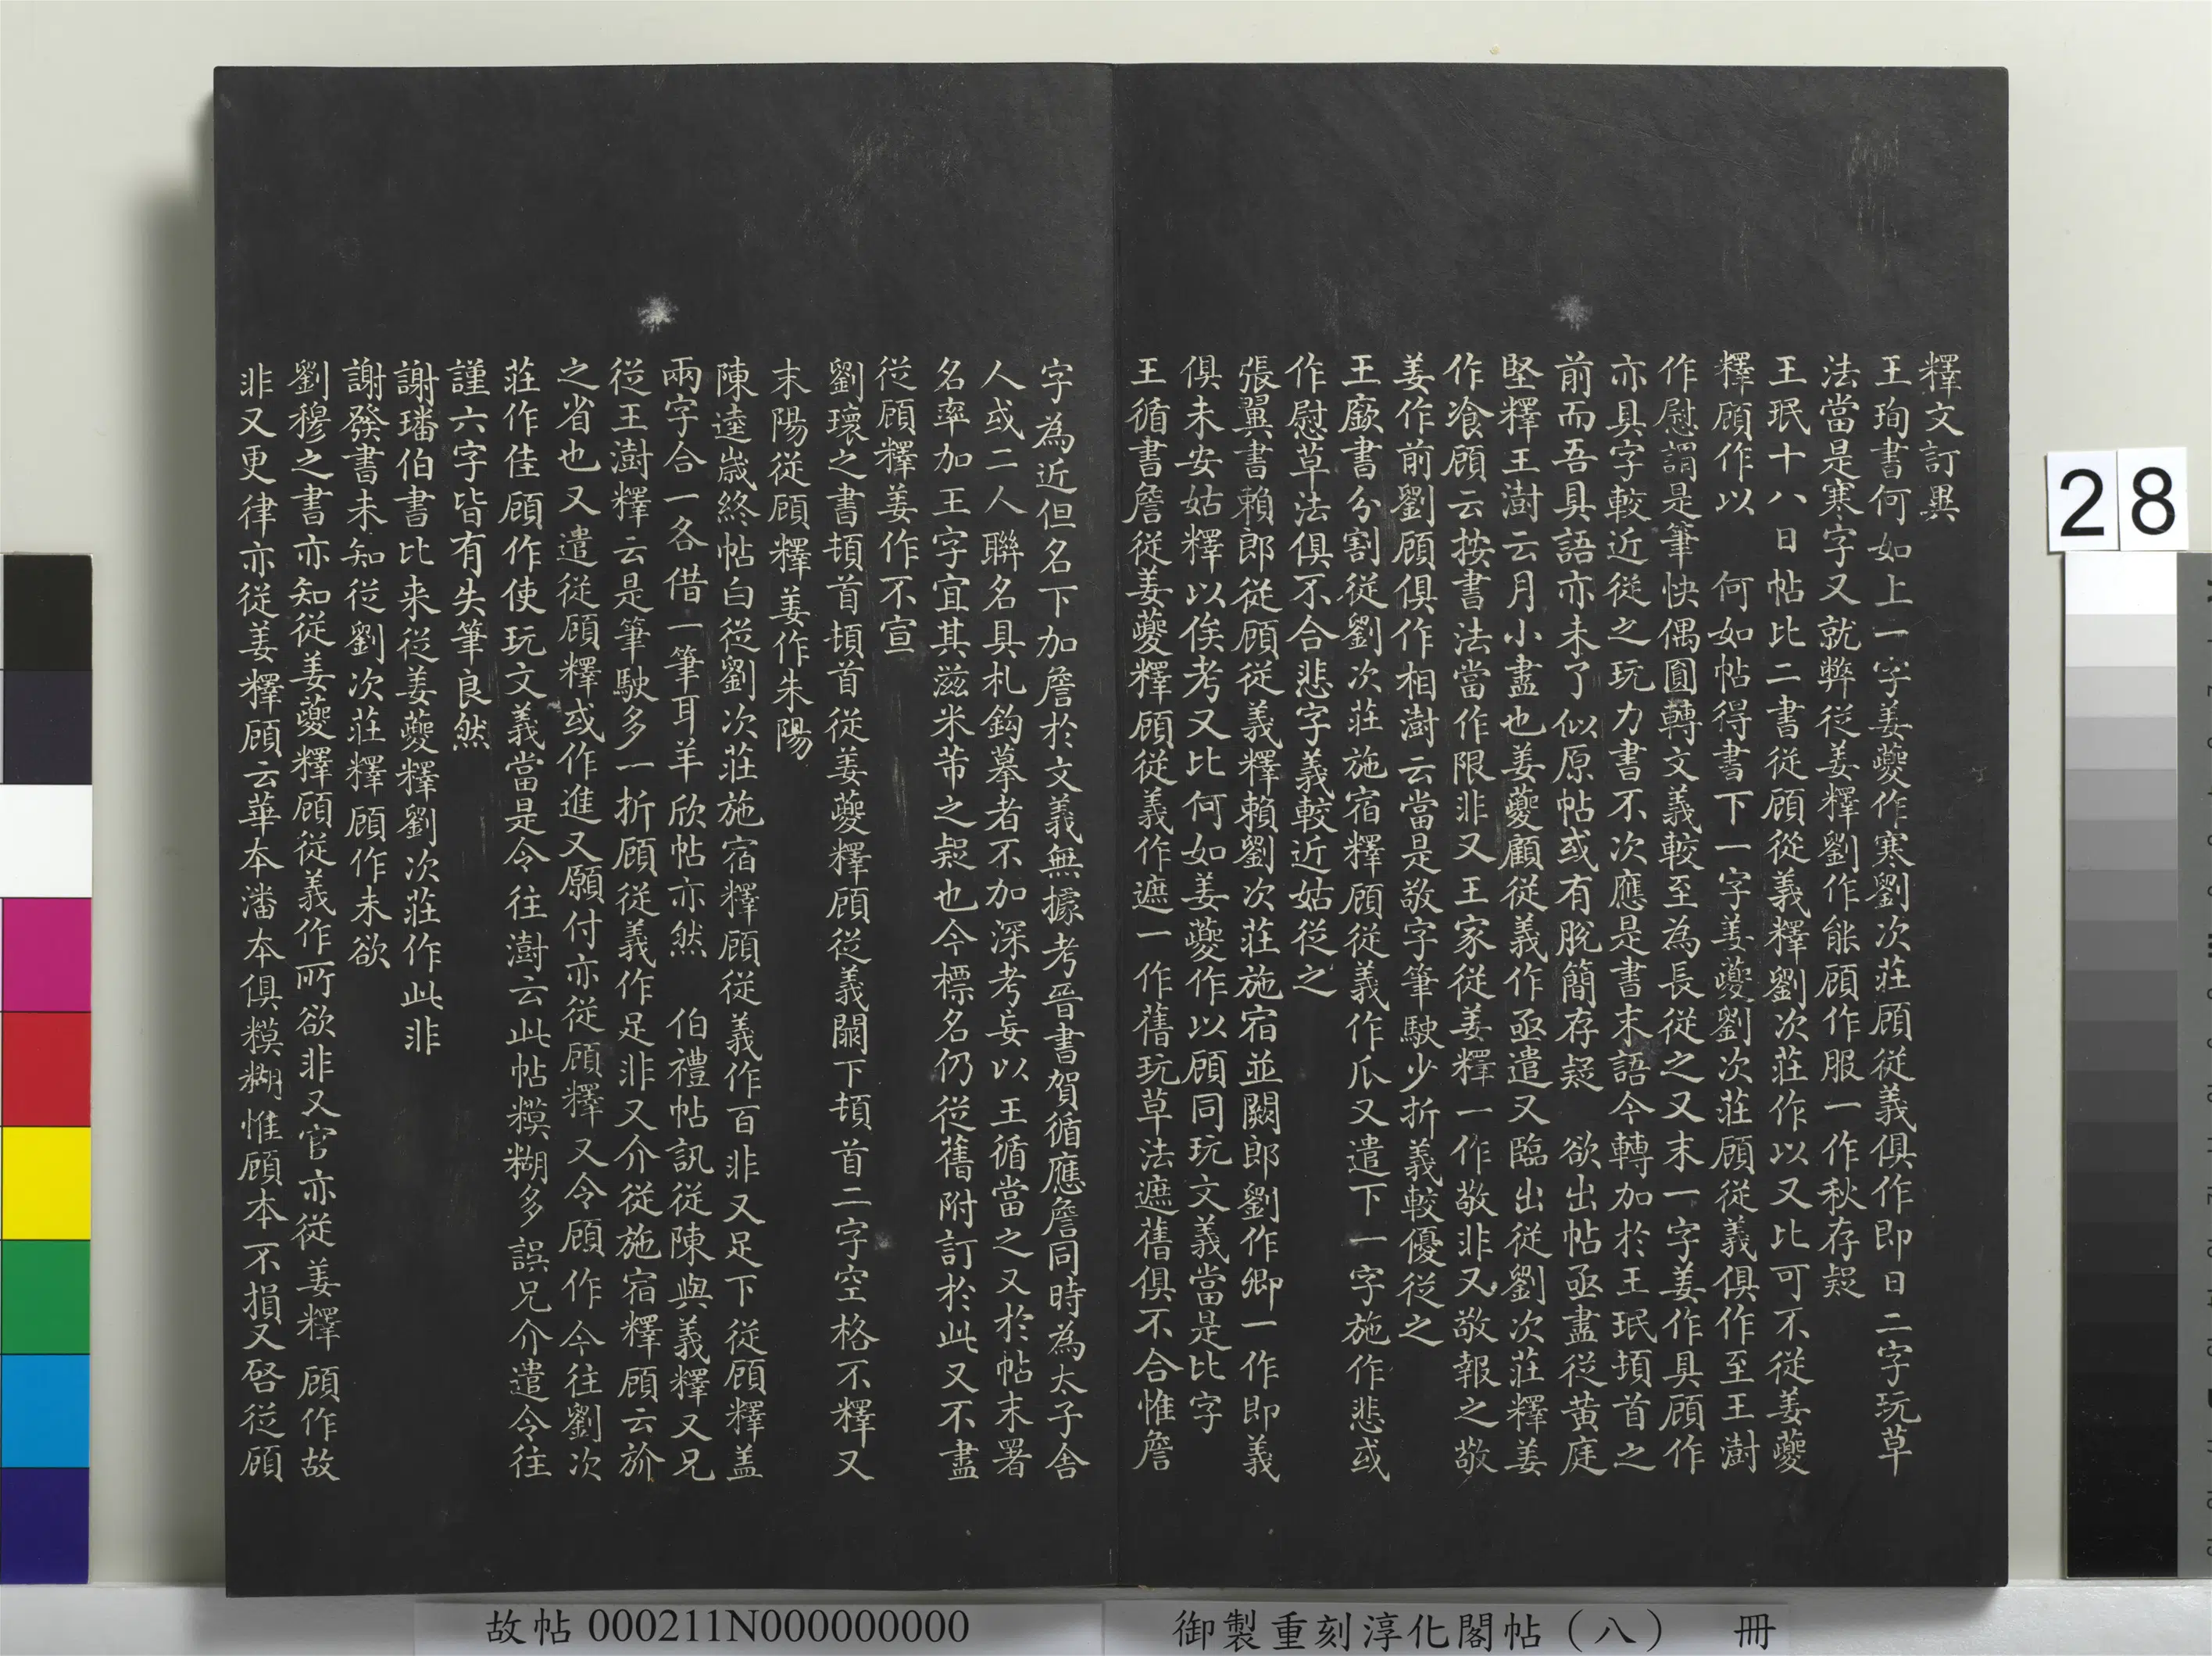 釋文訂異
王珣書何如上一字姜夔作寒劉次莊顧從義俱作即日二字玩草
法當是寒字又就弊從姜釋劉作能顧作服一作秋存疑
王珉十八日帖比二書從顧從義釋劉次莊作以又比可不從姜夔
釋顧作以 何如帖得書下一字姜夔劉次莊顧從義俱作至王澍
作慰謂是筆快偶圓轉文義較至為長從之又末一字姜作具顧作
亦具字較近從之玩力書不次應是書末語今轉加於王珉頓首之
前而吾具語亦未了似原帖或有脫簡存疑 欲出帖亟盡從黃庭
堅釋王澍云月小盡也姜夔顧從義作亟遣又臨出從劉次莊釋姜
作飡顧云按書法當作限非又王家從姜釋一作敬非又敬報之敬
姜作前劉顧俱作相澍云當是敬字筆駛少折義較優從之
王廞書分割從劉次莊施宿釋顧從義作瓜又遣下一字施作悲或
作慰草法俱不合悲字義較近姑從之
張翼書賴郎從顧從義釋賴劉次莊施宿並闕郎劉作卿一作即義
俱未安姑釋以俟考又比何如姜夔作以顧同玩文義當是比字
王循書詹從姜夔釋顧從義作遮一作舊玩草法遮舊俱不合惟詹
字為近但名下加詹於文義無據考晉書賀循應詹同時為太子舍
人或二人聯名具札鈎摹者不加深考妄以王循當之又於帖末署
名率加王字宜其滋米芾之疑也今標名仍從舊附訂於此又不盡
從顧釋姜作不宣
劉瓌之書頓首頓首從姜夔釋顧從義闕下頓首二字空格不釋又
末陽從顧釋姜作朱陽
陳逵歲終帖白從劉次莊施宿釋顧從義作百非又足下從顧釋蓋
兩字合一各借一筆耳羊欣帖亦然 伯禮帖訊從陳與義釋又兄
從王澍釋云是筆駛多一折顧從義作足非又介從施宿釋顧云於
之省也又遣從顧釋或作進又願付亦從顧釋又令顧作今往劉次
莊作佳顧作使玩文義當是令往澍云此帖糢糊多誤兄介遣令往
謹六字皆有失筆良然
謝璠伯書比来從姜夔釋劉次莊作此非
謝發書未知從劉次莊釋顧作未欲
劉穆之書亦知從姜夔釋顧從義作所欲非又官亦從姜釋顧作故
非又更律亦從姜釋顧云華本潘本俱糢糊惟顧本不損又啓從顧
28
故帖 000211N000000000
御製重刻淳化閣帖（八） 冊